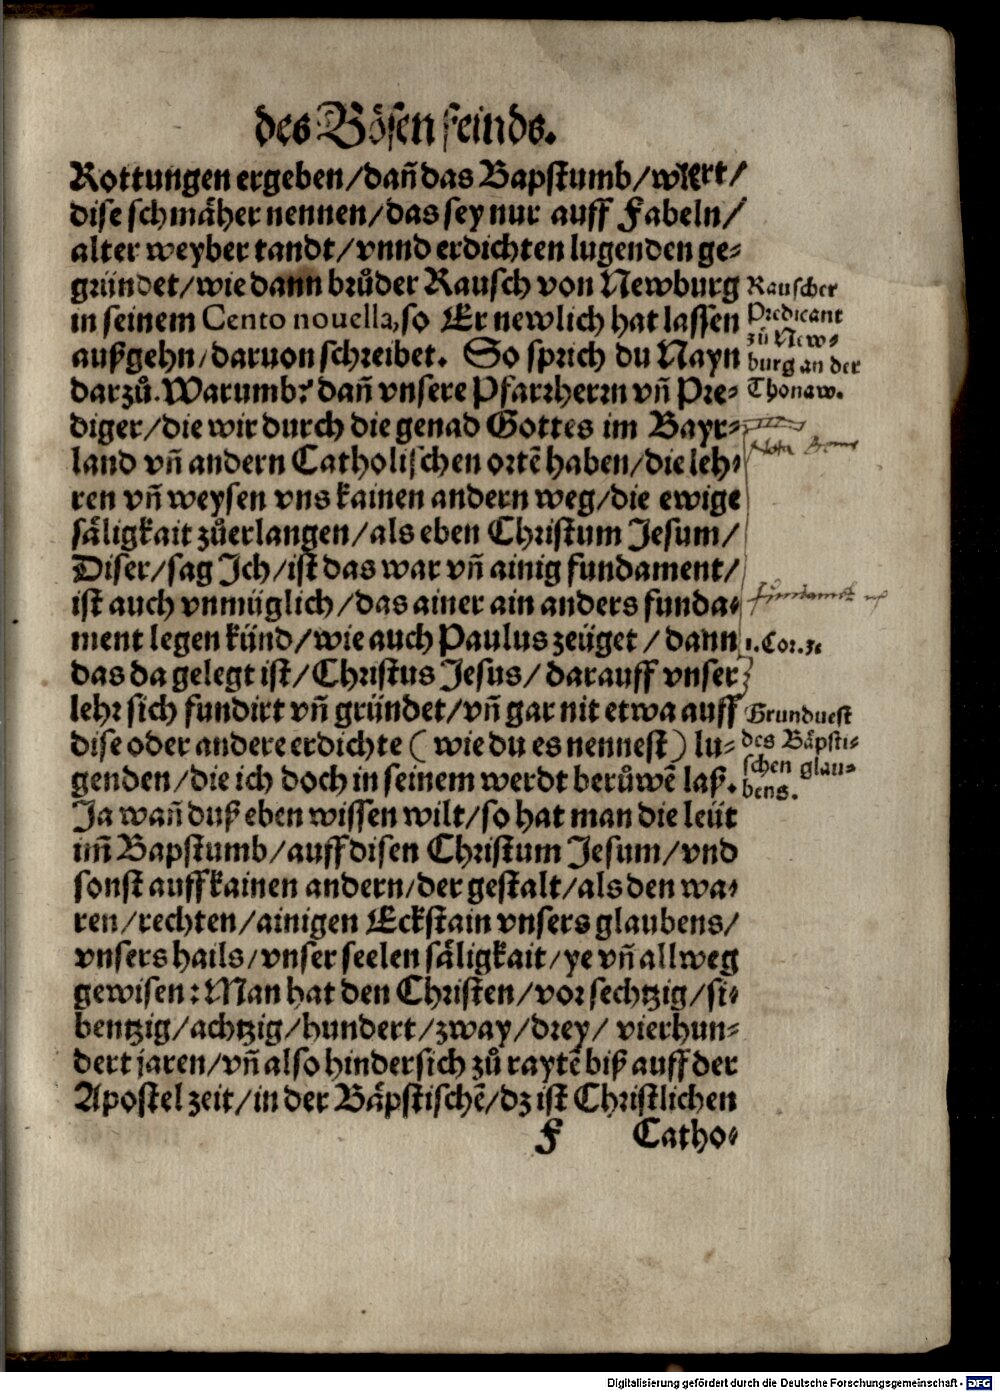 des Bösen feinds.
Rottungen ergeben/dañ das Bapstumb/wiert/
dise schmäher nennen/das sey nur auff Fabeln/
alter weyber tandt/vnnd erdichten lugenden ge⸗
gründet/wie dann brůder Rausch von Newburg
in seinem Cento nouella, so Er newlich hat lassen
außgehn/daruon schreibet. So sprich du Nayn
darzů. Warumb? dañ vnsere Pfarrherrn vñ Pre⸗
diger/die wir durch die genad Gottes im Bayr⸗
land vñ andern Catholischen ortẽ haben/die leh⸗
ren vñ weysen vns kainen andern weg/die ewige
säligkait zůerlangen/als eben Christum Jesum/
Diser/sag Ich/ist das war vñ ainig fundament/
ist auch vnmüglich/das ainer ain anders funda⸗
ment legen künd/wie auch Paulus zeüget/dann
das da gelegt ist/Christus Jesus/darauff vnser
lehr sich fundirt vñ gründet/vñ gar nit etwa auff
dise oder andere erdichte (wie du es nennest) lu⸗
genden/die ich doch in seinem werdt berůwẽ laß.
Ja wañ duß eben wissen wilt/so hat man die leüt
im̃ Bapstumb/auff disen Christum Jesum/vnd
sonst auff kainen andern/der gestalt/als den wa⸗
ren/rechten/ainigen Eckstain vnsers glaubens/
vnsers hails/vnser seelen säligkait/ye vñ allweg
gewisen: Man hat den Christen/vor sechtzig/si⸗
bentzig/achtzig/hundert/zway/drey/vierhun⸗
dert jaren/vñ also hindersich zů raytẽ biß auff der
Apostel zeit/in der Bäpstischẽ/dz ist Christlichen
F Catho⸗
Rauscher
Predicant
zů New⸗
burg an der
Thonaw.
Nota
fundament
1. Cor. 3.
Grunduest
des Bäpsti⸗
schen glau⸗
bens.
Digitalisierung gefördert durch die Deutsche Forschungsgemeinschaft - DFG